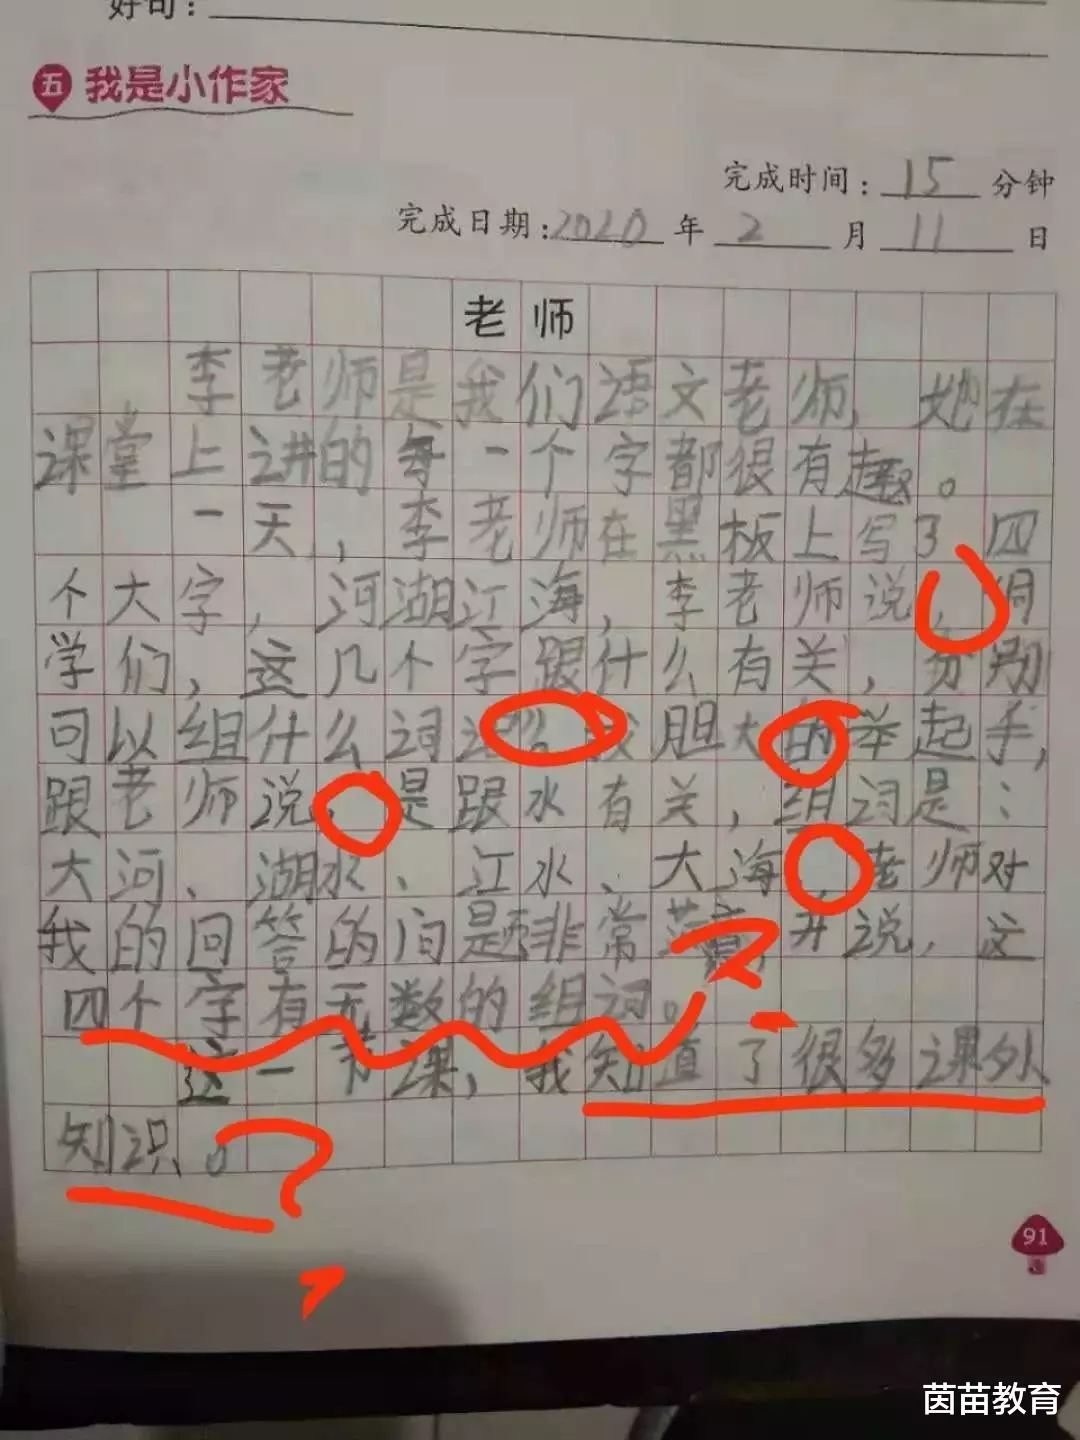 好句：
五 我是小作家
完成时间：15分钟
完成日期：2020年2月11日
老师
李老师是我们语文老师，她在
课堂上讲的每一个字都很有趣。
一天，李老师在黑板上写了四
个大字，河湖江海，李老师说，同
学们，这几个字跟什么有关，分别
可以组什么词语我胆大的举起手，
跟老师说，是跟水有关，组词是：
大河、湖水、江水、大海，老师对
我的回答的问题非常满意，并说，这
四个字有无数的组词。
这一节课，我知道了很多课外
知识。
91
茵苗教育